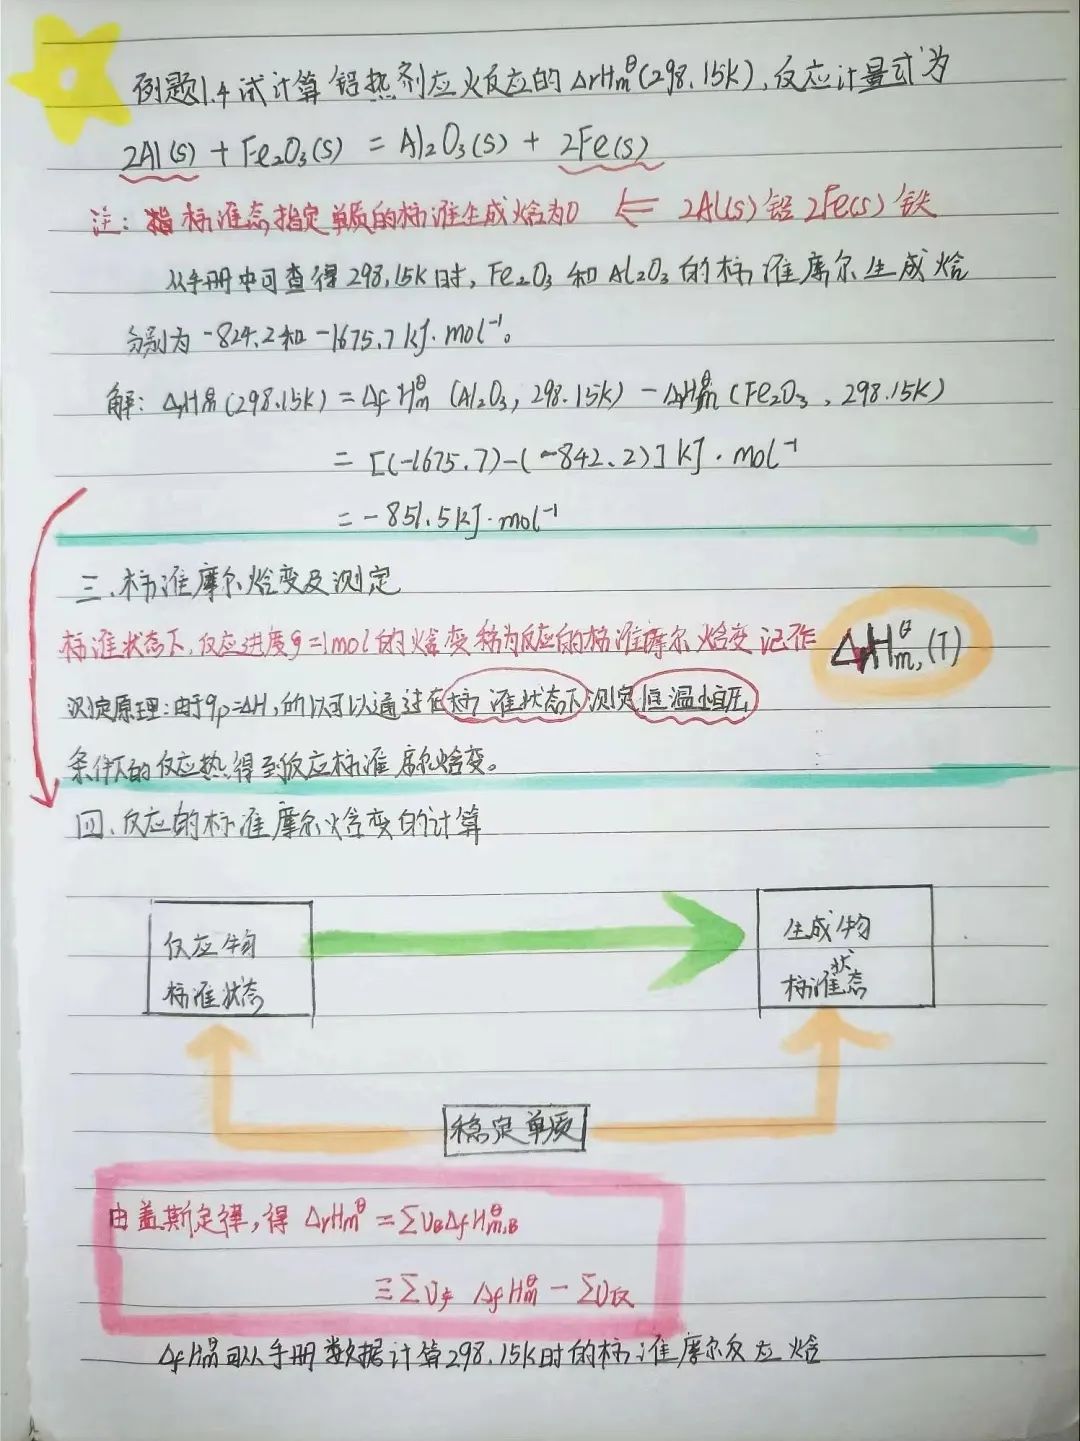 例题1.4 试计算铝热剂应火反应的ΔrHm^θ(298.15K),反应计量式为
2Al(s) + Fe₂O₃(s) = Al₂O₃(s) + 2Fe(s)
注: 标准态指定单质的标准生成焓为0 ⇐ 2Al(s)铝 2Fe(s)铁
从手册中可查得298.15K时, Fe₂O₃和Al₂O₃的标准摩尔生成焓
分别为-824.2和-1675.7 kJ·mol⁻¹。
解: ΔrHm^θ(298.15K) = ΔfHm^θ (Al₂O₃, 298.15K) - ΔfHm^θ (Fe₂O₃, 298.15K)
= [(-1675.7)-(-842.2)] kJ·mol⁻¹
= -851.5kJ·mol⁻¹
三.标准摩尔焓变及测定
标准状态下,反应进度ξ=1mol的焓变称为反应的标准摩尔焓变 记作 ΔrHm^θ,(T)
测定原理:由于qp=ΔH,所以可以通过在标准状态下测定恒温恒压
条件下的反应热得到反应标准摩尔焓变。
四.反应的标准摩尔焓变的计算
反应物
标准状态
生成物
标准状态
稳定单质
由盖斯定律,得 ΔrHm^θ = ΣυBΔfHm,B^θ
= Συ生 ΔfHm^θ - Συ反
ΔfHm^θ可从手册数据计算298.15K时的标准摩尔反应焓